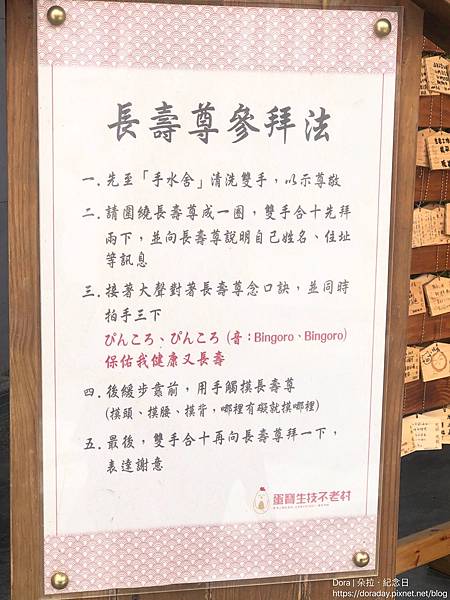 長壽尊參拜法
一. 先至「手水舍」清洗雙手，以示尊敬
二. 請圍繞長壽尊成一圈，雙手合十先拜
兩下，並向長壽尊說明自己姓名、住址
等訊息
三. 接著大聲對著長壽尊念口訣，並同時
拍手三下
ぴんころ、ぴんころ (音：Bingoro、Bingoro)
保佑我健康又長壽
四. 後緩步靠前，用手觸摸長壽尊
(摸頭、摸腰、摸背，哪裡有礙就摸哪裡)
五. 最後，雙手合十再向長壽尊拜一下，
表達謝意
蛋寶生技不老村
Dora | 朵拉．紀念日
https://doraday.pixnet.net/blog